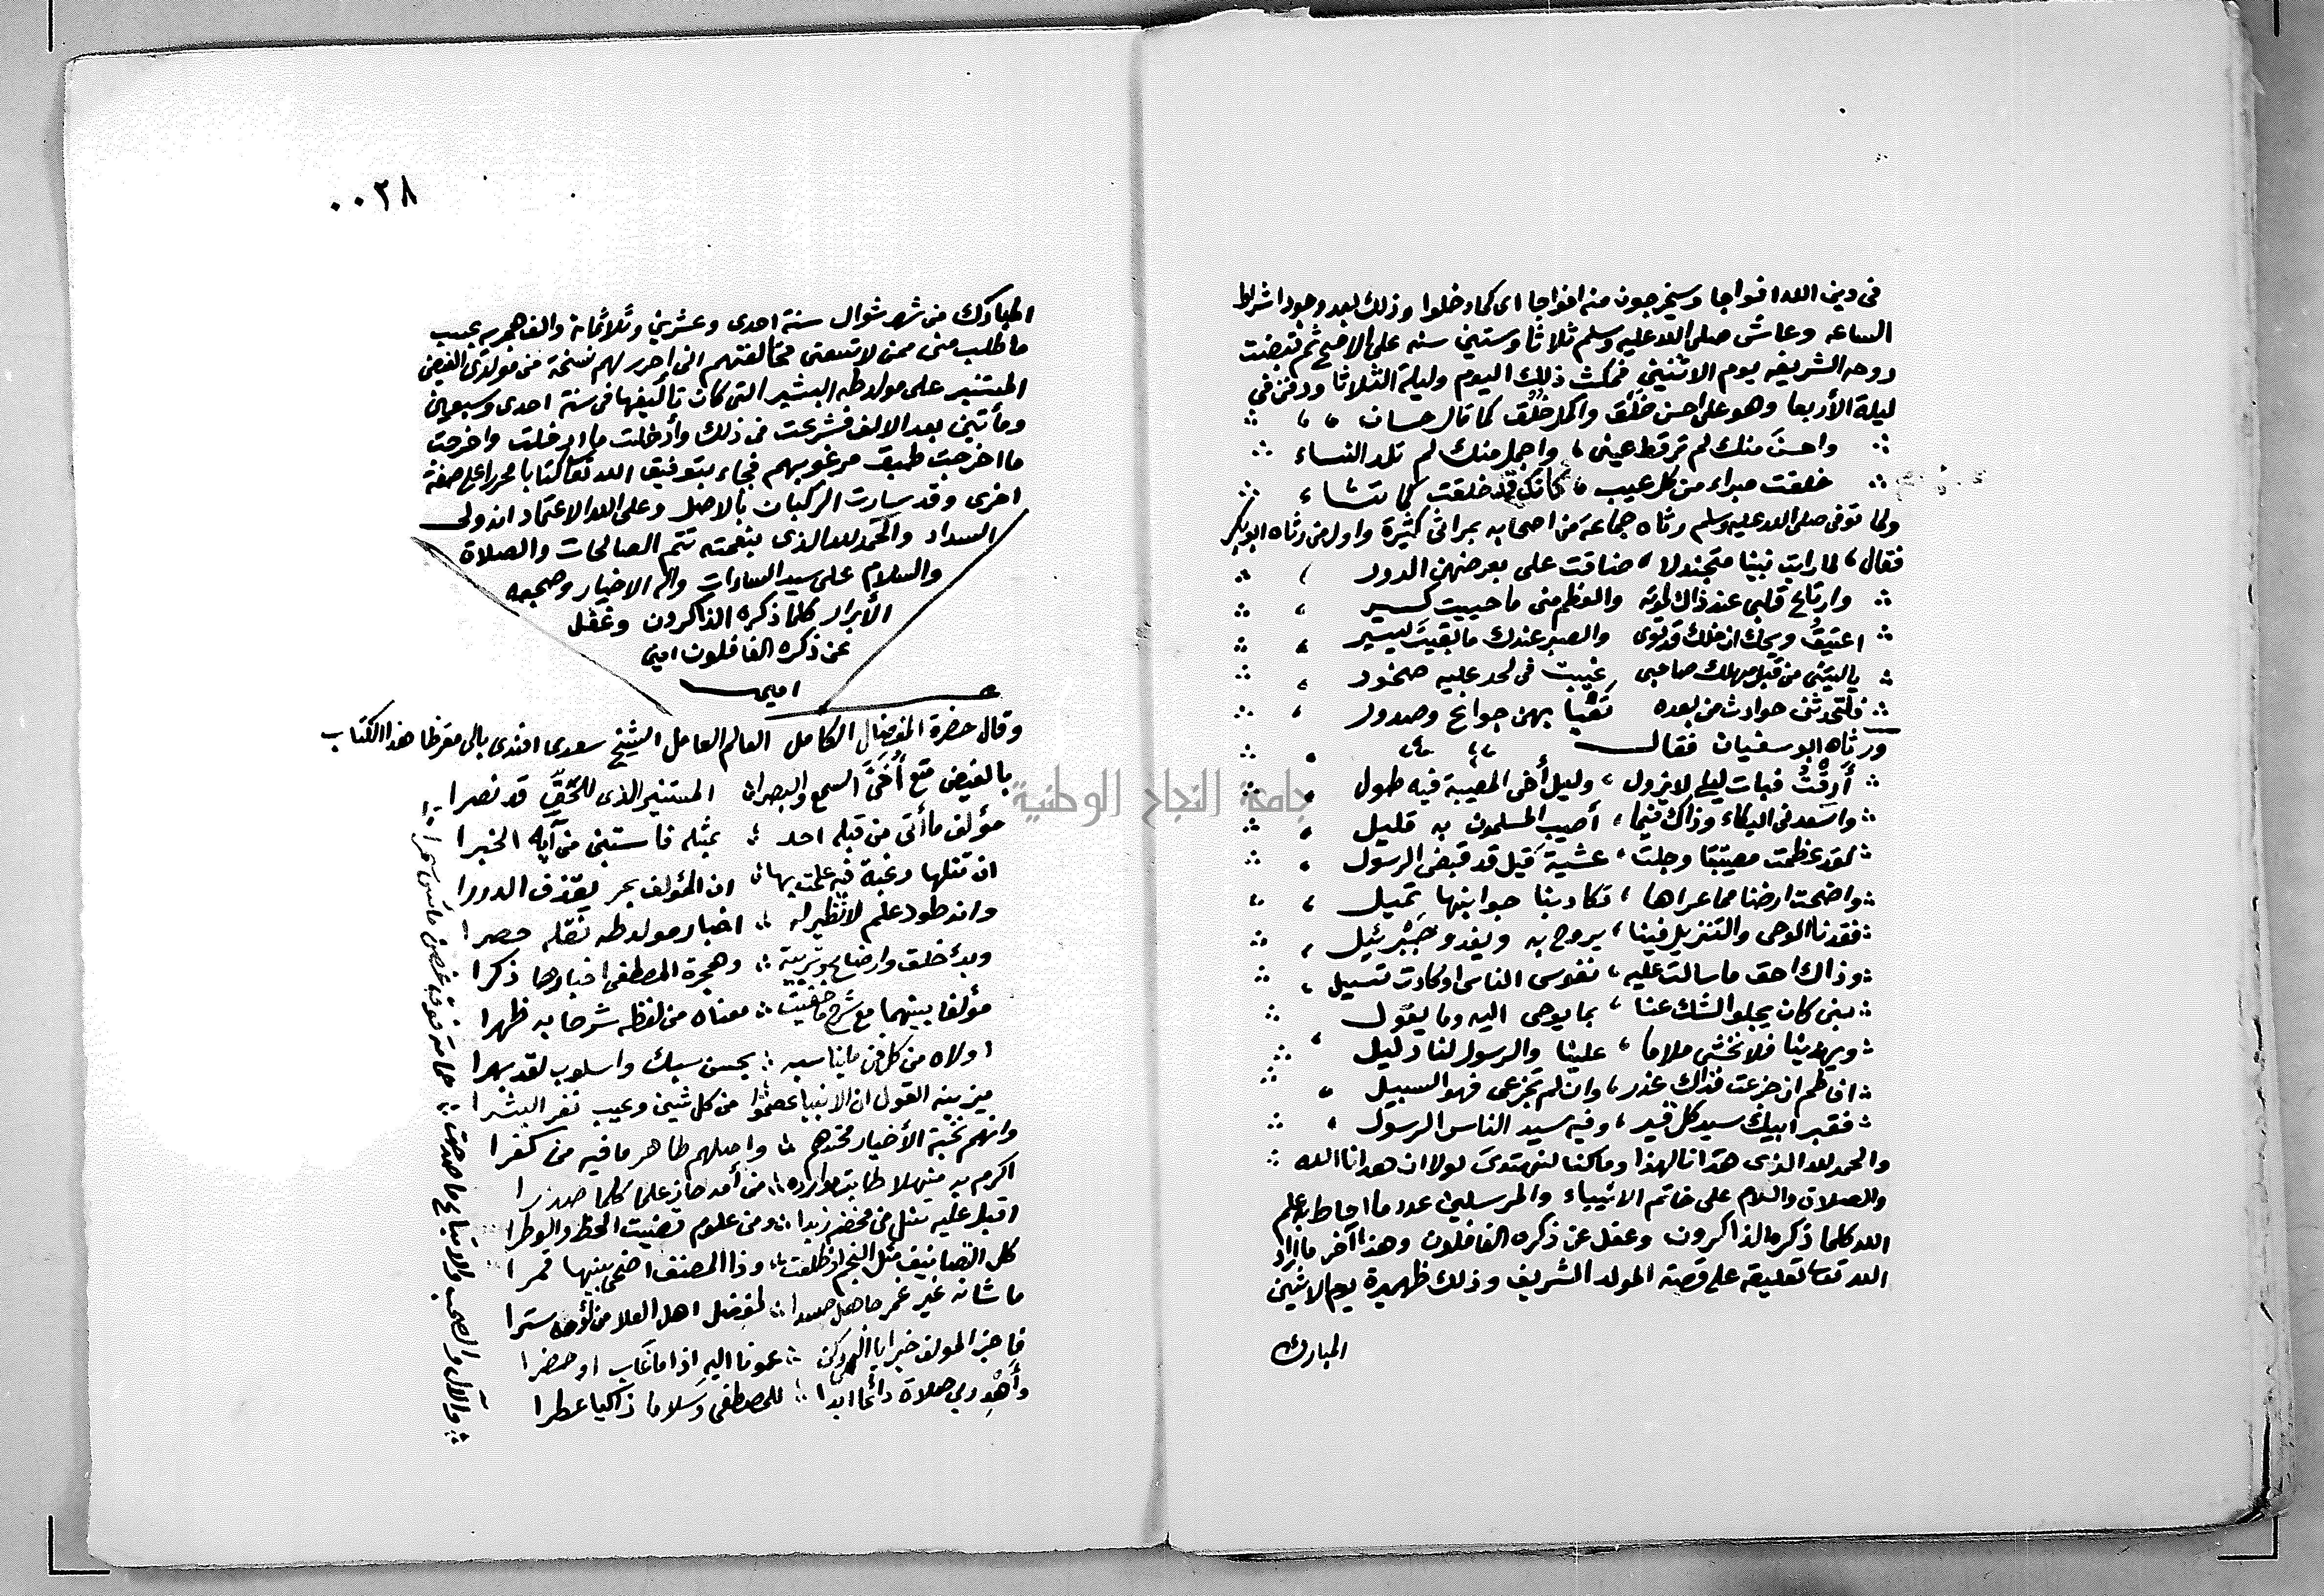 في دين الله افواجا وسيخرجون منه افواجا اى كما دخلوا وذلك بعد وجود اشراط
الساعه وعاش صلى الله عليه وسلم ثلاثا وستين سنه على الاصح ثم قبضت
روحه الشريفه يوم الاثنين فمكث ذلك اليوم وليلة الثلاثا ودفن في
ليلة الأربعا وهو على احسن خَلْق واكمل خُلُق كما قال حسان
واحسنَ منك لم ترقط عينى، واجمل منك لم تلد النساء
خلقت مبراء من كل عيب، كأنك قد خلقت كما تشاء
ولما توفى صلى الله عليه وسلم رثاه جماعة من اصحابه بمراثى كثيرة واول من رثاه ابو بكر
فقال، لما رايت نبينا متجندلا، ضاقت على بعرضهن الدور
وارتاع قلبى عند ذاك لموته والعظم منى ما حييت كسير
اعتيقُ ويحك ان خلك قد ثوى والصبر عندك ما بقيت يسير
يا ليتنى من قبل مهلك صاحبى غيبت فى لحد عليه صخور
فلتحدثن حوادث من بعده تعيا بهن جوانح وصدور
ورثاه ابو سفيان فقال
أرِقْتُ فبات ليلى لا يزول، وليل أخى المصيبة فيه طول
واسعدنى البكاء وذاك فيما، أصيب المسلمون به قليل
لقد عظمت مصيبتنا وجلت، عشية قيل قد قبض الرسول
واضحت ارضنا مما عراها، تكاد بنا جوانبها تميل
فقدنا الوحى والتنزيل فينا، يروح به ويغدو جبْرئيل
وذاك احق ما سالت عليه، نفوس الناس او كادت تسيل
نبى كان يجلو الشك عنا، بما يوحى اليه وما يقول
ويهدينا فلا نخشى ملاما، علينا والرسول لنا دليل
افاطم ان جزعت فذاك عذر، وان لم تجزعى فهو السبيل
فقبر ابيك سيد كل قبر، وفيه سيد الناس الرسول
والحمد لله الذى هدانا لهذا وما كنا لنهتدى لولا ان هدانا الله
والصلاة والسلام على خاتم الانبياء والمرسلين عدد ما احاط به علم
الله كلما ذكره الذاكرون وغفل عن ذكره الغافلون وهذا آخر ما اراد
الله تعليقه على قصة المولد الشريف وذلك ظهيرة يوم الاثنين
المبارك
٠٠٢٨
المبارك من شهر شوال سنة احدى وعشرين وثلاثمائة والف هجريه بحسب
ما طلب منى ممن لا تسعنى مخالفتهم انى احرر لهم نسخة من مولدى الفيض
المستنير على مولد طه البشير التى كان تأليفها فى سنة احدى وسبعين
ومأتين بعد الالف فشرعت فى ذلك وأدخلت ما ادخلت واخرجت
ما اخرجت طبق مرغوبهم فجاء بتوفيق الله كتابا محررا على صفة
اخرى وقد سارت الركبان بالاصل وعلى الله الاعتماد انه ولى
السداد والحمد لله الذى بنعمته تتم الصالحات والصلاة
والسلام على سيد السادات واله الاخيار وصحبه
الأبرار كلما ذكره الذاكرون وغفل
عن ذكره الغافلون امين
امين
وقال حضرة المفضال الكامل العالم العامل الشيخ سعدى افندى بالى مقرظا هذا الكتاب
بالفيض متع أُخَىَّ السمع والبصرا المستنير الذى للحقّ قد نصرا
مؤلف ما أتى من قبله احد بمثله فاستبن من آيه الخبرا
ان المؤلف بحر يقذف الدررا
وانه طود علم لا نظير له اخبار مولد طه نقله حصرا
وبدء خلق وارضاع وتربية وهجرة المصطفى اخبارها ذكرا
مؤلفا بينهما مع شرح ما خفيت معناه من لفظه شرحا به ظهرا
اولاه من كل فن ما يناسبه بحسن سبك واسلوب لقد بهرا
القول ان الانبيا عصموا من كل شين وعيب
وانهم نخبة الأخيار واصلهم طاهر ما فيه من كفرا
اكرم به منهلا طابت موارده من أمه حاز علما كلما صدرا
اقبل عليه ومن علوم قضيت الحظ والوطرا
كل التصانيف مثل النجم اذ طلعت وذا المصنف اضحى بينها قمرا
ما شانه غير غمر حاسد لفضل اهل العلا من لؤمه سترا
فاجز المولف خيرا يا الهى وكن عونا اليه اذا ما غاب او حضرا
وأَهْدِ ربى صلاة دائما ابدا للمصطفى وسلاما ذاكيا عطرا
والآل والصحب والاتباع ما صدحت حمامة فوق غصن
جامعة النجاح الوطنية